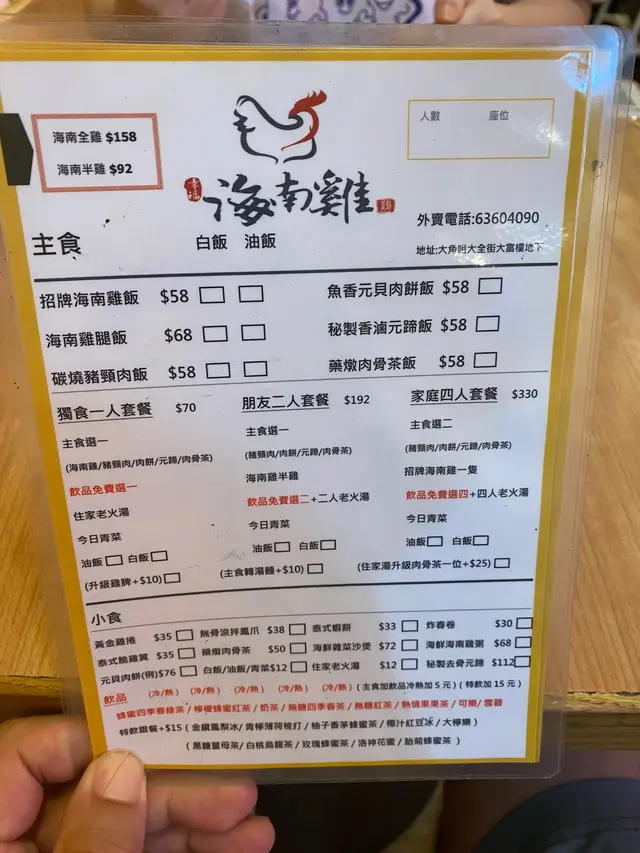 海南全雞 $158
海南半雞 $92
人數 座位
幸福 海南雞
外賣電話:63604090
地址:大角咀大全街大富樓地下
主食 白飯 油飯
招牌海南雞飯 $58
海南雞腿飯 $68
碳燒豬頸肉飯 $58
魚香元貝肉餅飯 $58
秘製香滷元蹄飯 $58
藥燉肉骨茶飯 $58
獨食一人套餐 $70
主食選一
(海南雞/豬頸肉/肉餅/元蹄/肉骨茶)
飲品免費選一
住家老火湯
今日青菜
油飯 白飯
(升級雞脾+$10)
朋友二人套餐 $192
主食選一
(豬頸肉/肉餅/元蹄/肉骨茶)
海南雞半雞
飲品免費選二+二人老火湯
今日青菜
油飯 白飯
(主食轉湯麵+$10)
家庭四人套餐 $330
主食選二
(豬頸肉/肉餅/元蹄/肉骨茶)
招牌海南雞一隻
飲品免費選四+四人老火湯
今日青菜
油飯 白飯
(住家湯升級肉骨茶一位+$25)
小食
黃金雞捲 $35 無骨涼拌鳳爪 $38 泰式蝦餅 $33 炸春卷 $30
泰式脆雞翼 $35 藥燉肉骨茶 $50 海鮮雜菜沙煲 $72 海鮮海南雞粥 $68
元貝肉餅(例)$76 白飯/油飯/青菜$12 住家老火湯 $12 秘製去骨元蹄 $112
飲品 (冷/熱) (冷/熱) (冷/熱) (冷/熱) (冷/熱) (主食加飲品冷熱加 5 元) (特飲加 15 元)
蜂蜜四季春綠茶/ 檸檬蜂蜜紅茶/ 奶茶/ 無糖四季春茶/ 無糖紅茶/ 熱情果果茶/ 可樂/ 雪碧
特飲跟餐+$15 (金鑽鳳梨冰/ 青檸薄荷梳打/ 柚子香茅蜂蜜茶/ 椰汁紅豆冰/ 大檸樂)
(黑糖薑母茶/ 白桃烏龍茶/ 玫瑰蜂蜜茶/ 洛神花蜜/ 胎菊蜂蜜茶)